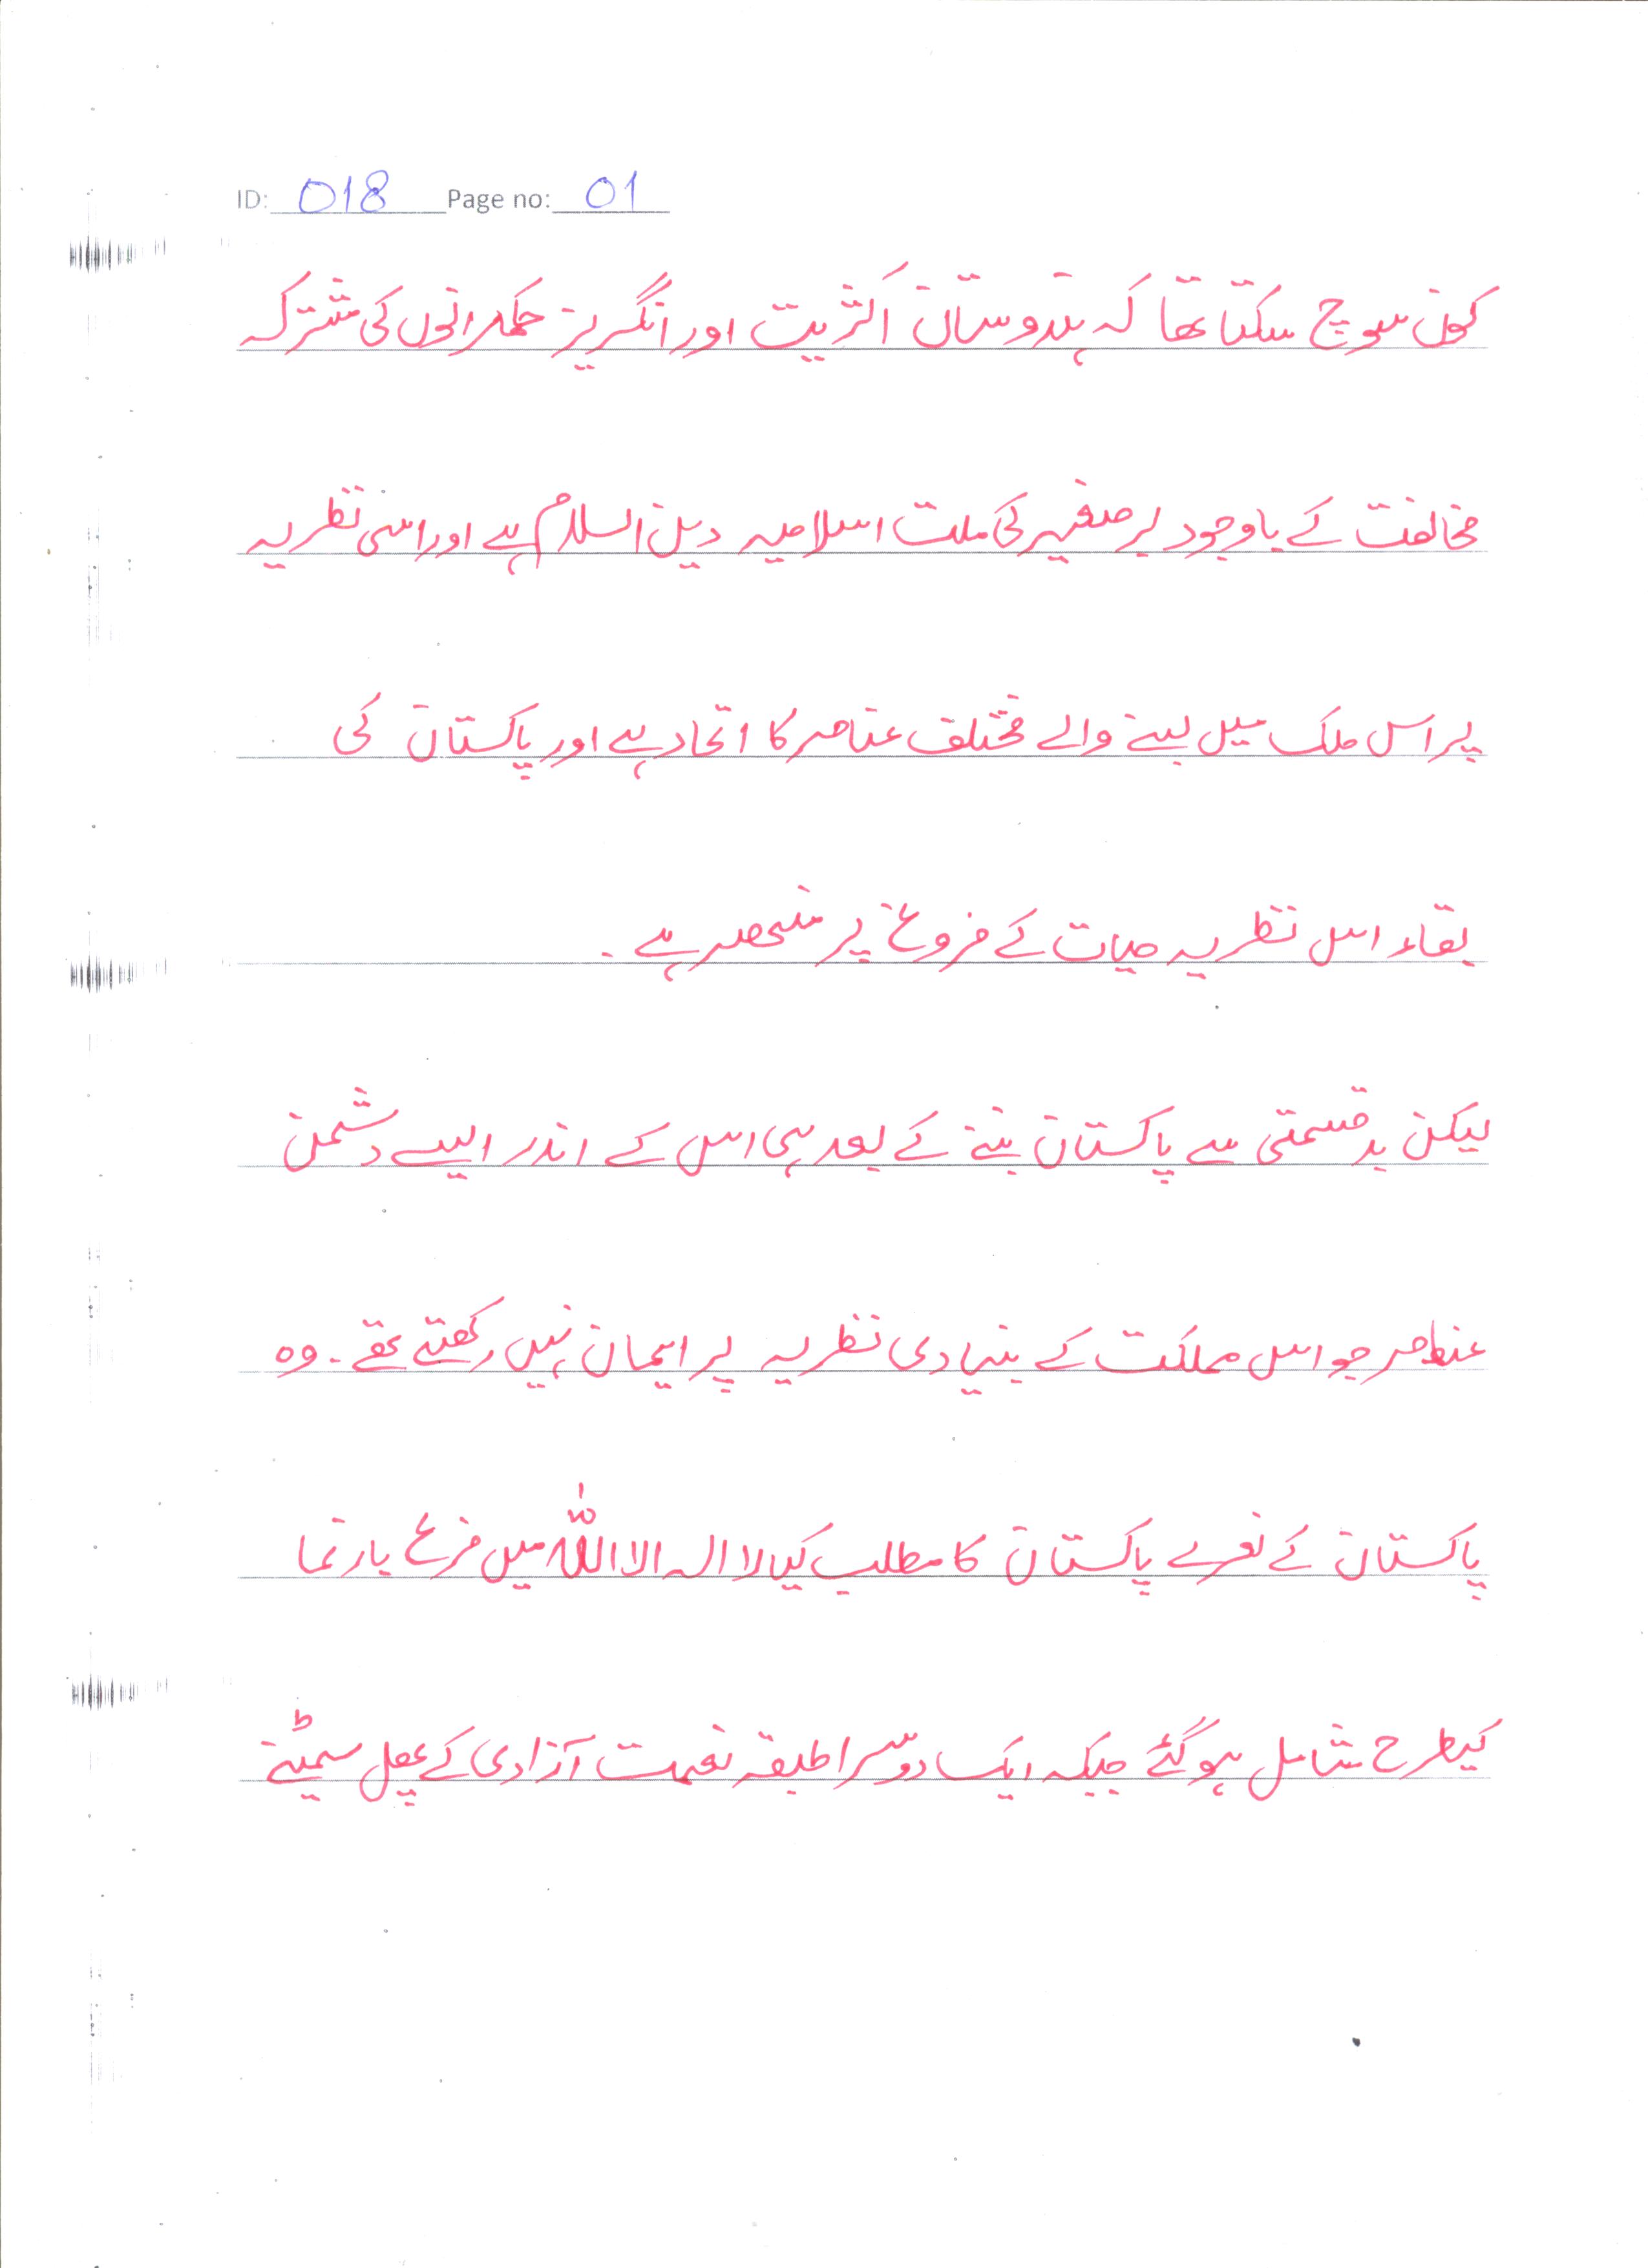 ID: 018 Page no: 01
کون سوچ سکتا تھا کہ ہندوستان اکثریت اور انگریز حکمرانوں کی مشترکہ
مخالفت کے باوجود برصغیر کی ملت اسلامیہ دین السلام ہے اور اسی نظریہ
پر اس ملک میں بسنے والے مختلف عناصر کا اتحاد ہے اور پاکستان کی
بقاء اس نظریہ حیات کے فروغ پر منحصر ہے۔
لیکن بدقسمتی سے پاکستان بننے کے بعد ہی اس کے اندر ایسے دشمن
عناصر جو اس مملکت کے بنیادی نظریہ پر ایمان نہیں رکھتے تھے۔ وہ
پاکستان کے نعرے پاکستان کا مطلب کیا لا الہ الا اللہ میں مرغ بادنما
کیطرح شامل ہوگئے جبکہ ایک دوسرا طبقہ نعمت آزادی کے پھل سمیٹنے